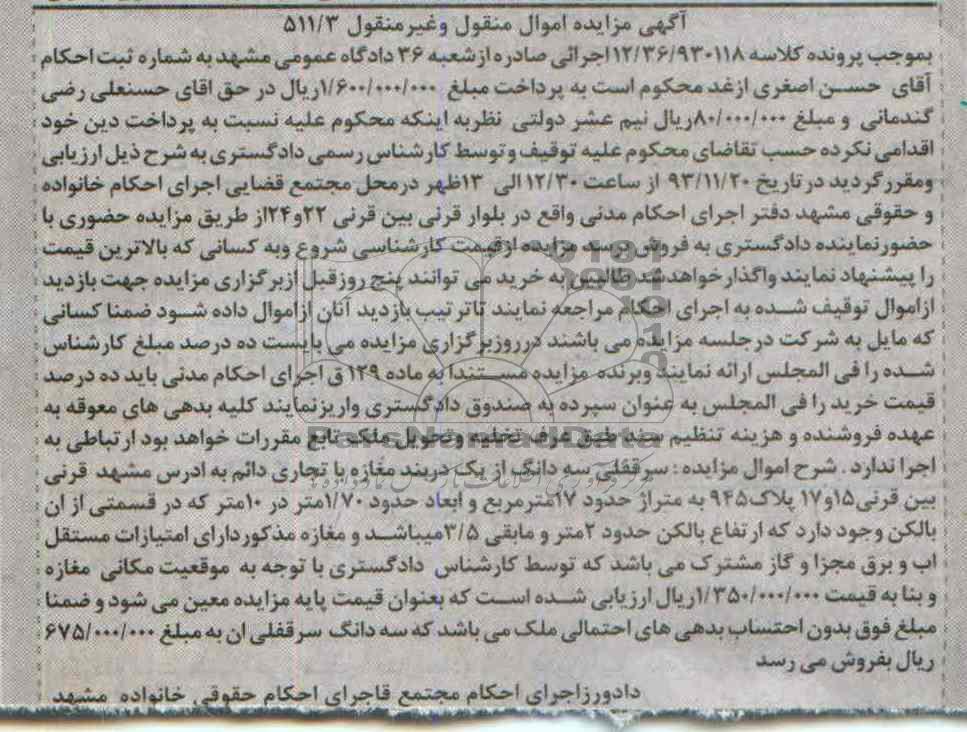 آگهی مزایده اموال منقول وغیرمنقول ۵۱۱/۳
بموجب پرونده کلاسه ۱۲/۳۶/۹۳۰۱۱۸اجرائی صادره ازشعبه ۳۶ دادگاه عمومی مشهد به شماره ثبت احکام
آقای حسن اصغری ازغد محکوم است به پرداخت مبلغ ۱/۶۰۰/۰۰۰/۰۰۰ریال در حق اقای حسنعلی رضی
گندمانی و مبلغ ۸۰/۰۰۰/۰۰۰ریال نیم عشر دولتی نظربه اینکه محکوم علیه نسبت به پرداخت دین خود
اقدامی نکرده حسب تقاضای محکوم علیه توقیف وتوسط کارشناس رسمی دادگستری به شرح ذیل ارزیابی
ومقررگردید درتاریخ ۹۳/۱۱/۲۰ از ساعت ۱۲/۳۰الی ۱۳ظهر درمحل مجتمع قضایی اجرای احکام خانواده
و حقوقی مشهد دفتر اجرای احکام مدنی واقع در بلوار قرنی بین قرنی ۲۲و۲۴از طریق مزایده حضوری با
حضورنماینده دادگستری به فروش برسد مزایده ازقیمت کارشناسی شروع وبه کسانی که بالاترین قیمت
را پیشنهاد نمایند واگذارخواهدشد طالبین به خرید می توانند پنج روزقبل ازبرگزاری مزایده جهت بازدید
ازاموال توقیف شده به اجرای احکام مراجعه نمایند تاترتیب بازدید آنان ازاموال داده شود ضمنا کسانی
که مایل به شرکت درجلسه مزایده می باشند درروزبرگزاری مزایده می بایست ده درصد مبلغ کارشناس
شده را فی المجلس ارائه نمایند وبرنده مزایده مستندا به ماده ۱۲۹ ق اجرای احکام مدنی باید ده درصد
قیمت خرید را فی المجلس به عنوان سپرده به صندوق دادگستری واریزنمایند کلیه بدهی های معوقه به
عهده فروشنده و هزینه تنظیم سند طبق عرف تخلیه وتحویل ملک تابع مقررات خواهد بود ارتباطی به
اجرا ندارد . شرح اموال مزایده : سرقفلی سه دانگ از یک دربند مغازه با تجاری دائم به ادرس مشهد قرنی
بین قرنی۱۵و۱۷ پلاک۹۴۵ به متراژ حدود ۱۷مترمربع و ابعاد حدود ۱/۷۰متر در ۱۰متر که در قسمتی از ان
بالکن وجود دارد که ارتفاع بالکن حدود ۲متر و مابقی ۳/۵میباشد و مغازه مذکوردارای امتیازات مستقل
اب و برق مجزا و گاز مشترک می باشد که توسط کارشناس دادگستری با توجه به موقعیت مکانی مغازه
و بنا به قیمت ۱/۳۵۰/۰۰۰/۰۰۰ریال ارزیابی شده است که بعنوان قیمت پایه مزایده معین می شود و ضمنا
مبلغ فوق بدون احتساب بدهی های احتمالی ملک می باشد که سه دانگ سرقفلی ان به مبلغ ۶۷۵/۰۰۰/۰۰۰
ریال بفروش می رسد
دادورزاجرای احکام مجتمع قاجرای احکام حقوقی خانواده مشهد
ParsNamadData